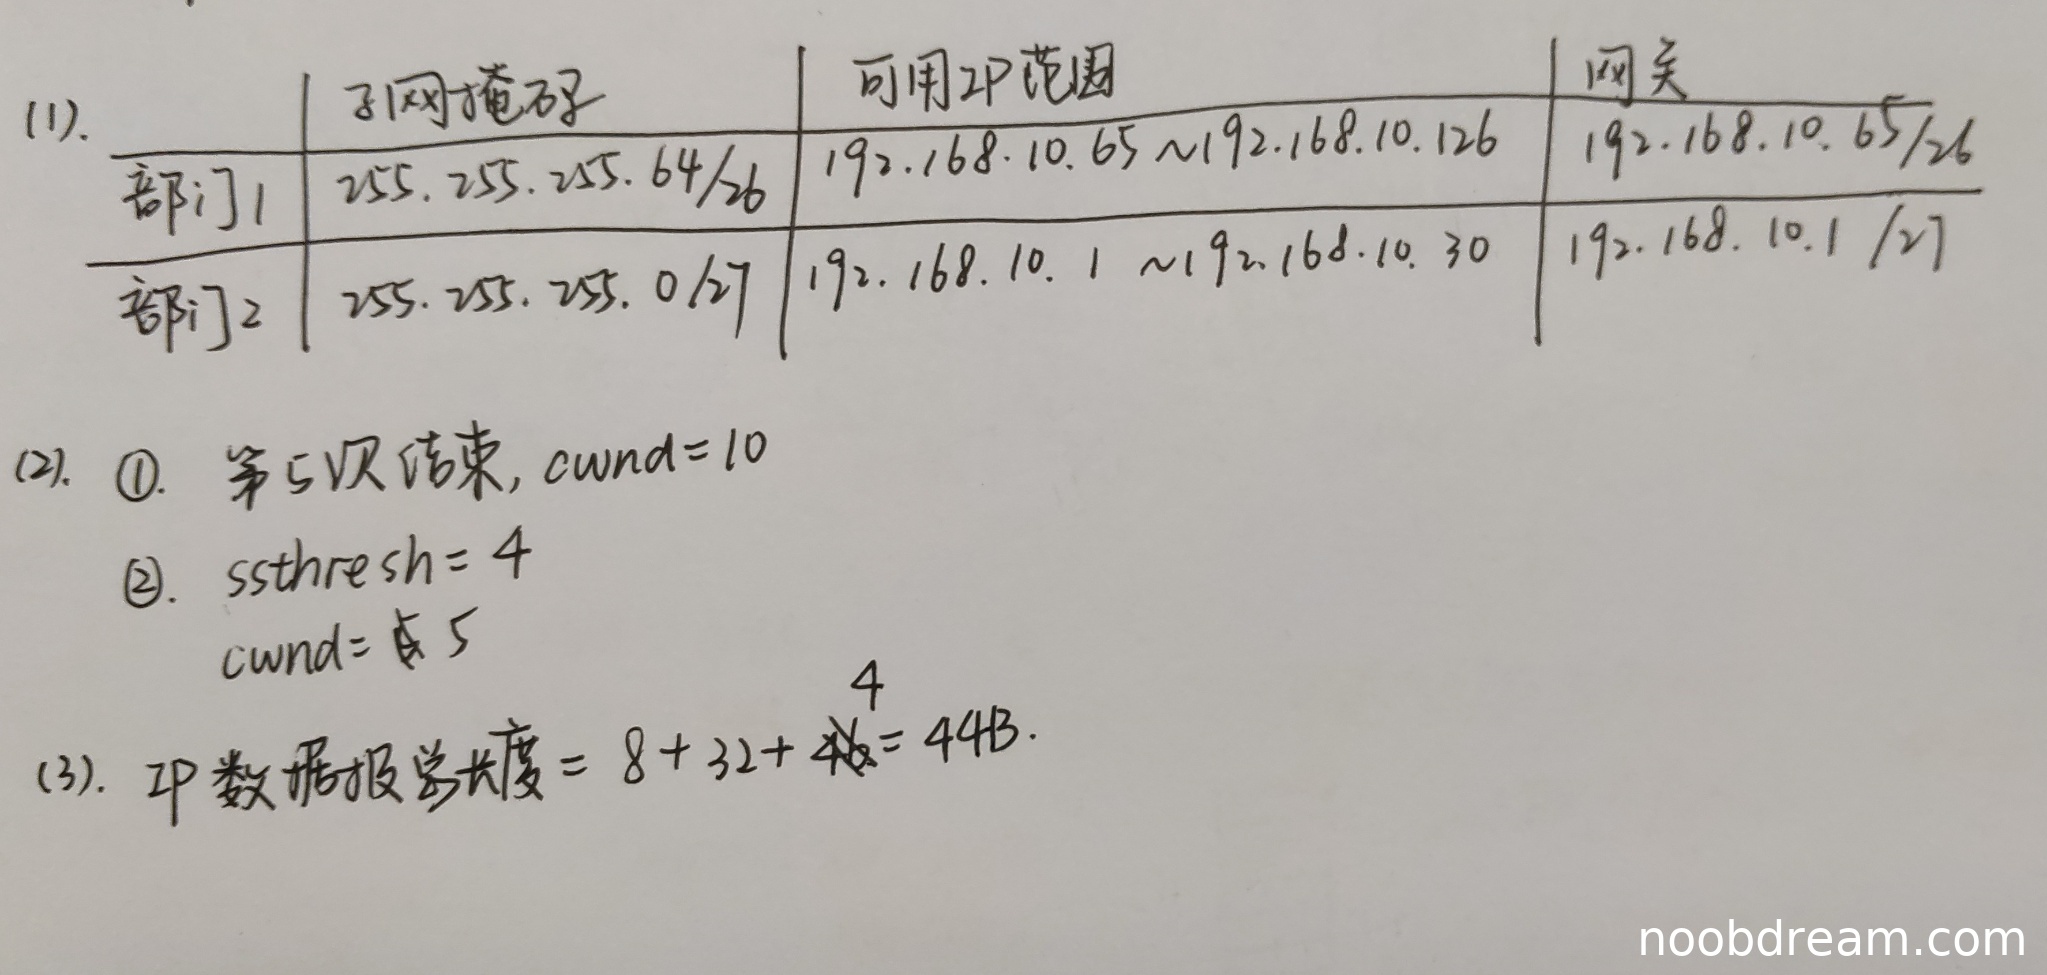 (1). 子网掩码 可用IP范围 网关
部门1 255.255.255.64/26 192.168.10.65~192.168.10.126 192.168.10.65/26
部门2 255.255.255.0/27 192.168.10.1 ~192.168.10.30 192.168.10.1 /27
(2). ①. 第5次结束, cwnd=10
②. ssthresh=4
cwnd= 5
4
(3). IP数据报总长度= 8+32+ =44B.
noobdream.com